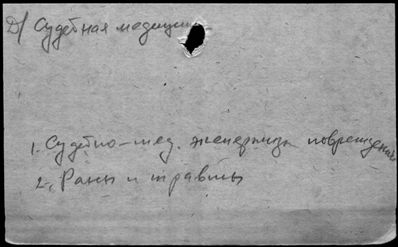 Д/ Судебная медицина
1. Судебно-мед. экспертиза повреждений
2. Раны и травмы